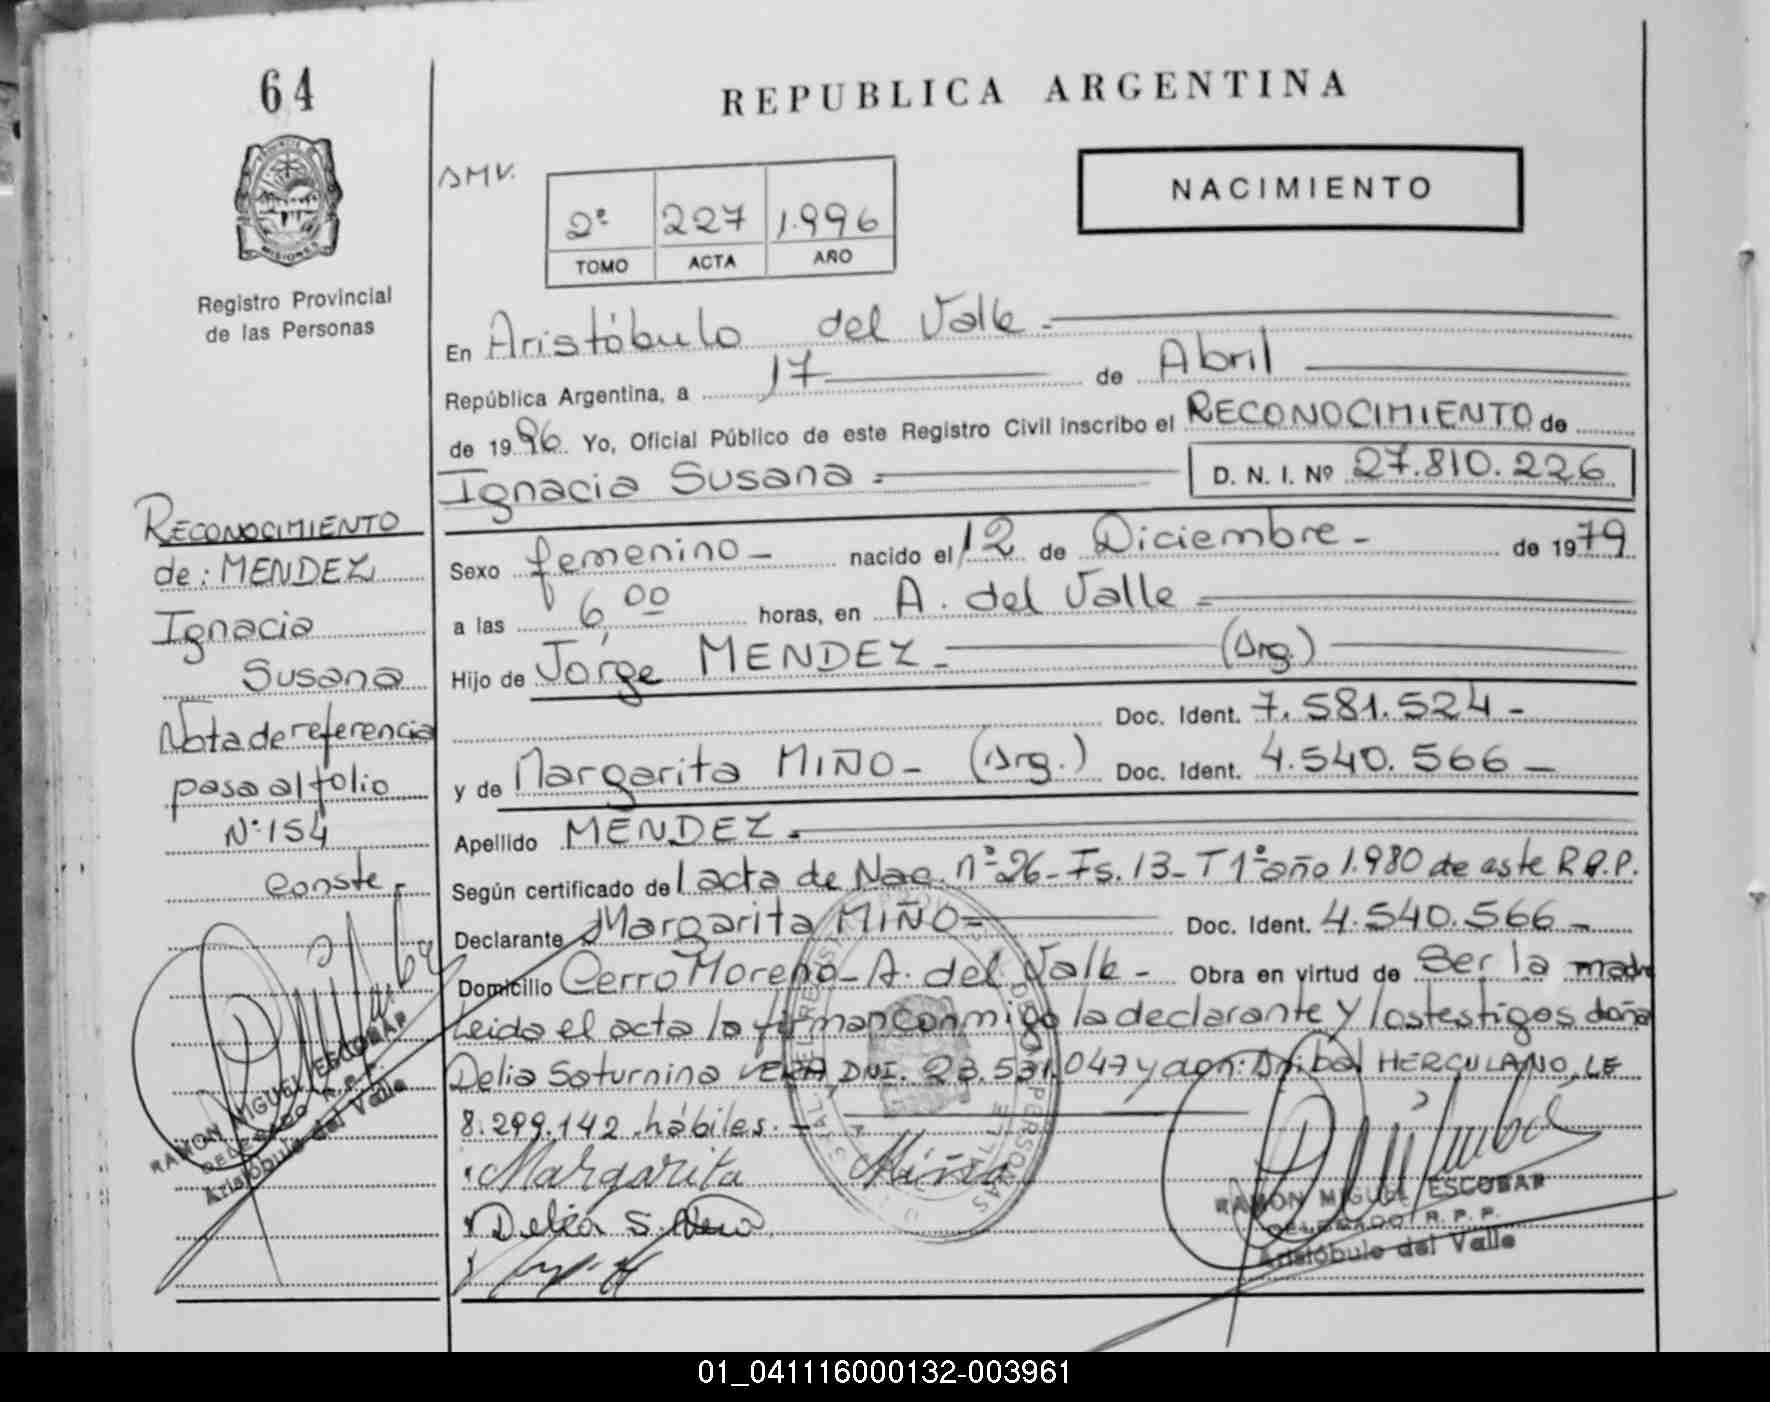 64
REPUBLICA ARGENTINA
NACIMIENTO
2º 227 1.996
TOMO ACTA AÑO
PROVINCIA DE MISIONES
Registro Provincial
de las Personas
En Aristóbulo del Valle -
República Argentina, a 17 de Abril
de 1996 Yo, Oficial Público de este Registro Civil inscribo el RECONOCIMIENTO de
Ignacia Susana = D. N. I. Nº 27.810.226
Sexo femenino - nacido el 12 de Diciembre - de 1979
a las 6,00 horas, en A. del Valle =
Hijo de Jorge MENDEZ - (Arg.)
Doc. Ident. 7.581.524 -
y de Margarita MIÑO - (Arg.) Doc. Ident. 4.540.566 -
Apellido MENDEZ.
Según certificado de l acta de Nac. nº 26 - Fs. 13 - T 1º año 1.980 de este R.P.P.
Declarante Margarita MIÑO = Doc. Ident. 4.540.566 -
Domicilio Cerro Moreno - A. del Valle - Obra en virtud de Ser la madre
Leida el acta la firman conmigo la declarante y los testigos doña
Delia Saturnina VERA, DNI. 23.531.047 y don: Anibal HERCULANO, LE
8.299.142 hábiles. -
Margarita Miño
Delia S. Vera
RAMON MIGUEL ESCOBAR
DELEGADO R.P.P.
Aristóbulo del Valle
RECONOCIMIENTO
de: MENDEZ
Ignacia
Susana
Nota de referencia
pasa al folio
Nº 154
Conste -
RAMON MIGUEL ESCOBAR
DELEGADO R.P.P.
Aristóbulo del Valle
01_041116000132-003961